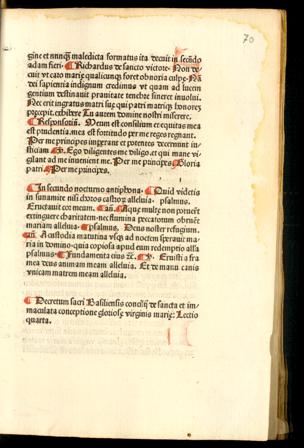 70
gine et nunq̃ maledicta formatus ita decuit in secũdo
adam fieri. Richardus de sancto victore. Non de
cuit vt caro marie qualicunq̃ foret obnoxia culpe. Nã
dei sapientia indignum credimus vt quam ad lucem
gentium destinauit prauitate tenebre fineret inuolui.
Nec erit ingratus matri sue qui patri matrisq̃ honores
precepit exhibere Tu autem domine nostri miserere.
Responsoriũ. Meum est consilium et equitas mea
est prudentia. mea est fortitudo per me reges regnant.
Per me principes imperant et potentes decernunt in-
sticiam ℣. Ego diligentes me diligo. et qui mane vi-
gilant ad me inuenient me. Per me principes Gloria
patri Per me principes.
In secundo nocturno antiphona. Quid videtis
in sunamite nisi choros castrorum alleluia. psalmus.
Eructauit cor meum. añ. Aque multe non poterunt
extinguere charitatem. nec flumina peccatorum obruẽt
mariam alleluia. Psalmus. Deus noster refugium.
añ. A custodia matutina vsq̃ ad noctem sperauit ma-
ria in domino. quia copiosa apud eum redemptio alla
psalmus Fundamenta eius ℣. Eruisti a fra
mea deus animam meam alleluia. Et de manu canis
vnicam matrem meam alleluia.
Decretum sacri Basiliensis concilij de sancta et im-
maculata conceptione gloriose virginis marie: Lectio
quarta.